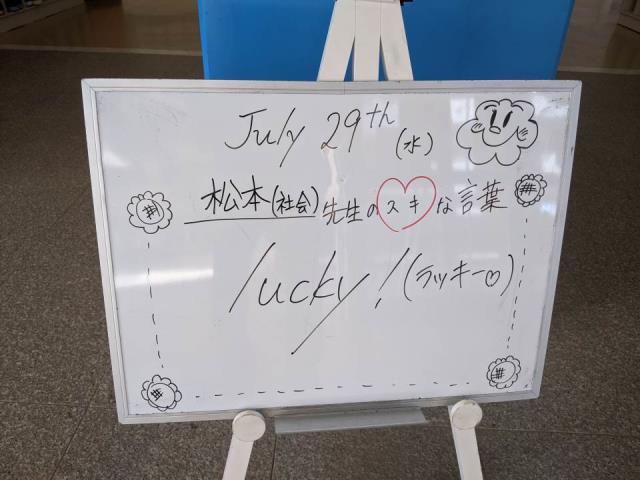 July 29th (水)
松本(社会)先生のスキな言葉
lucky!(ラッキー♡)